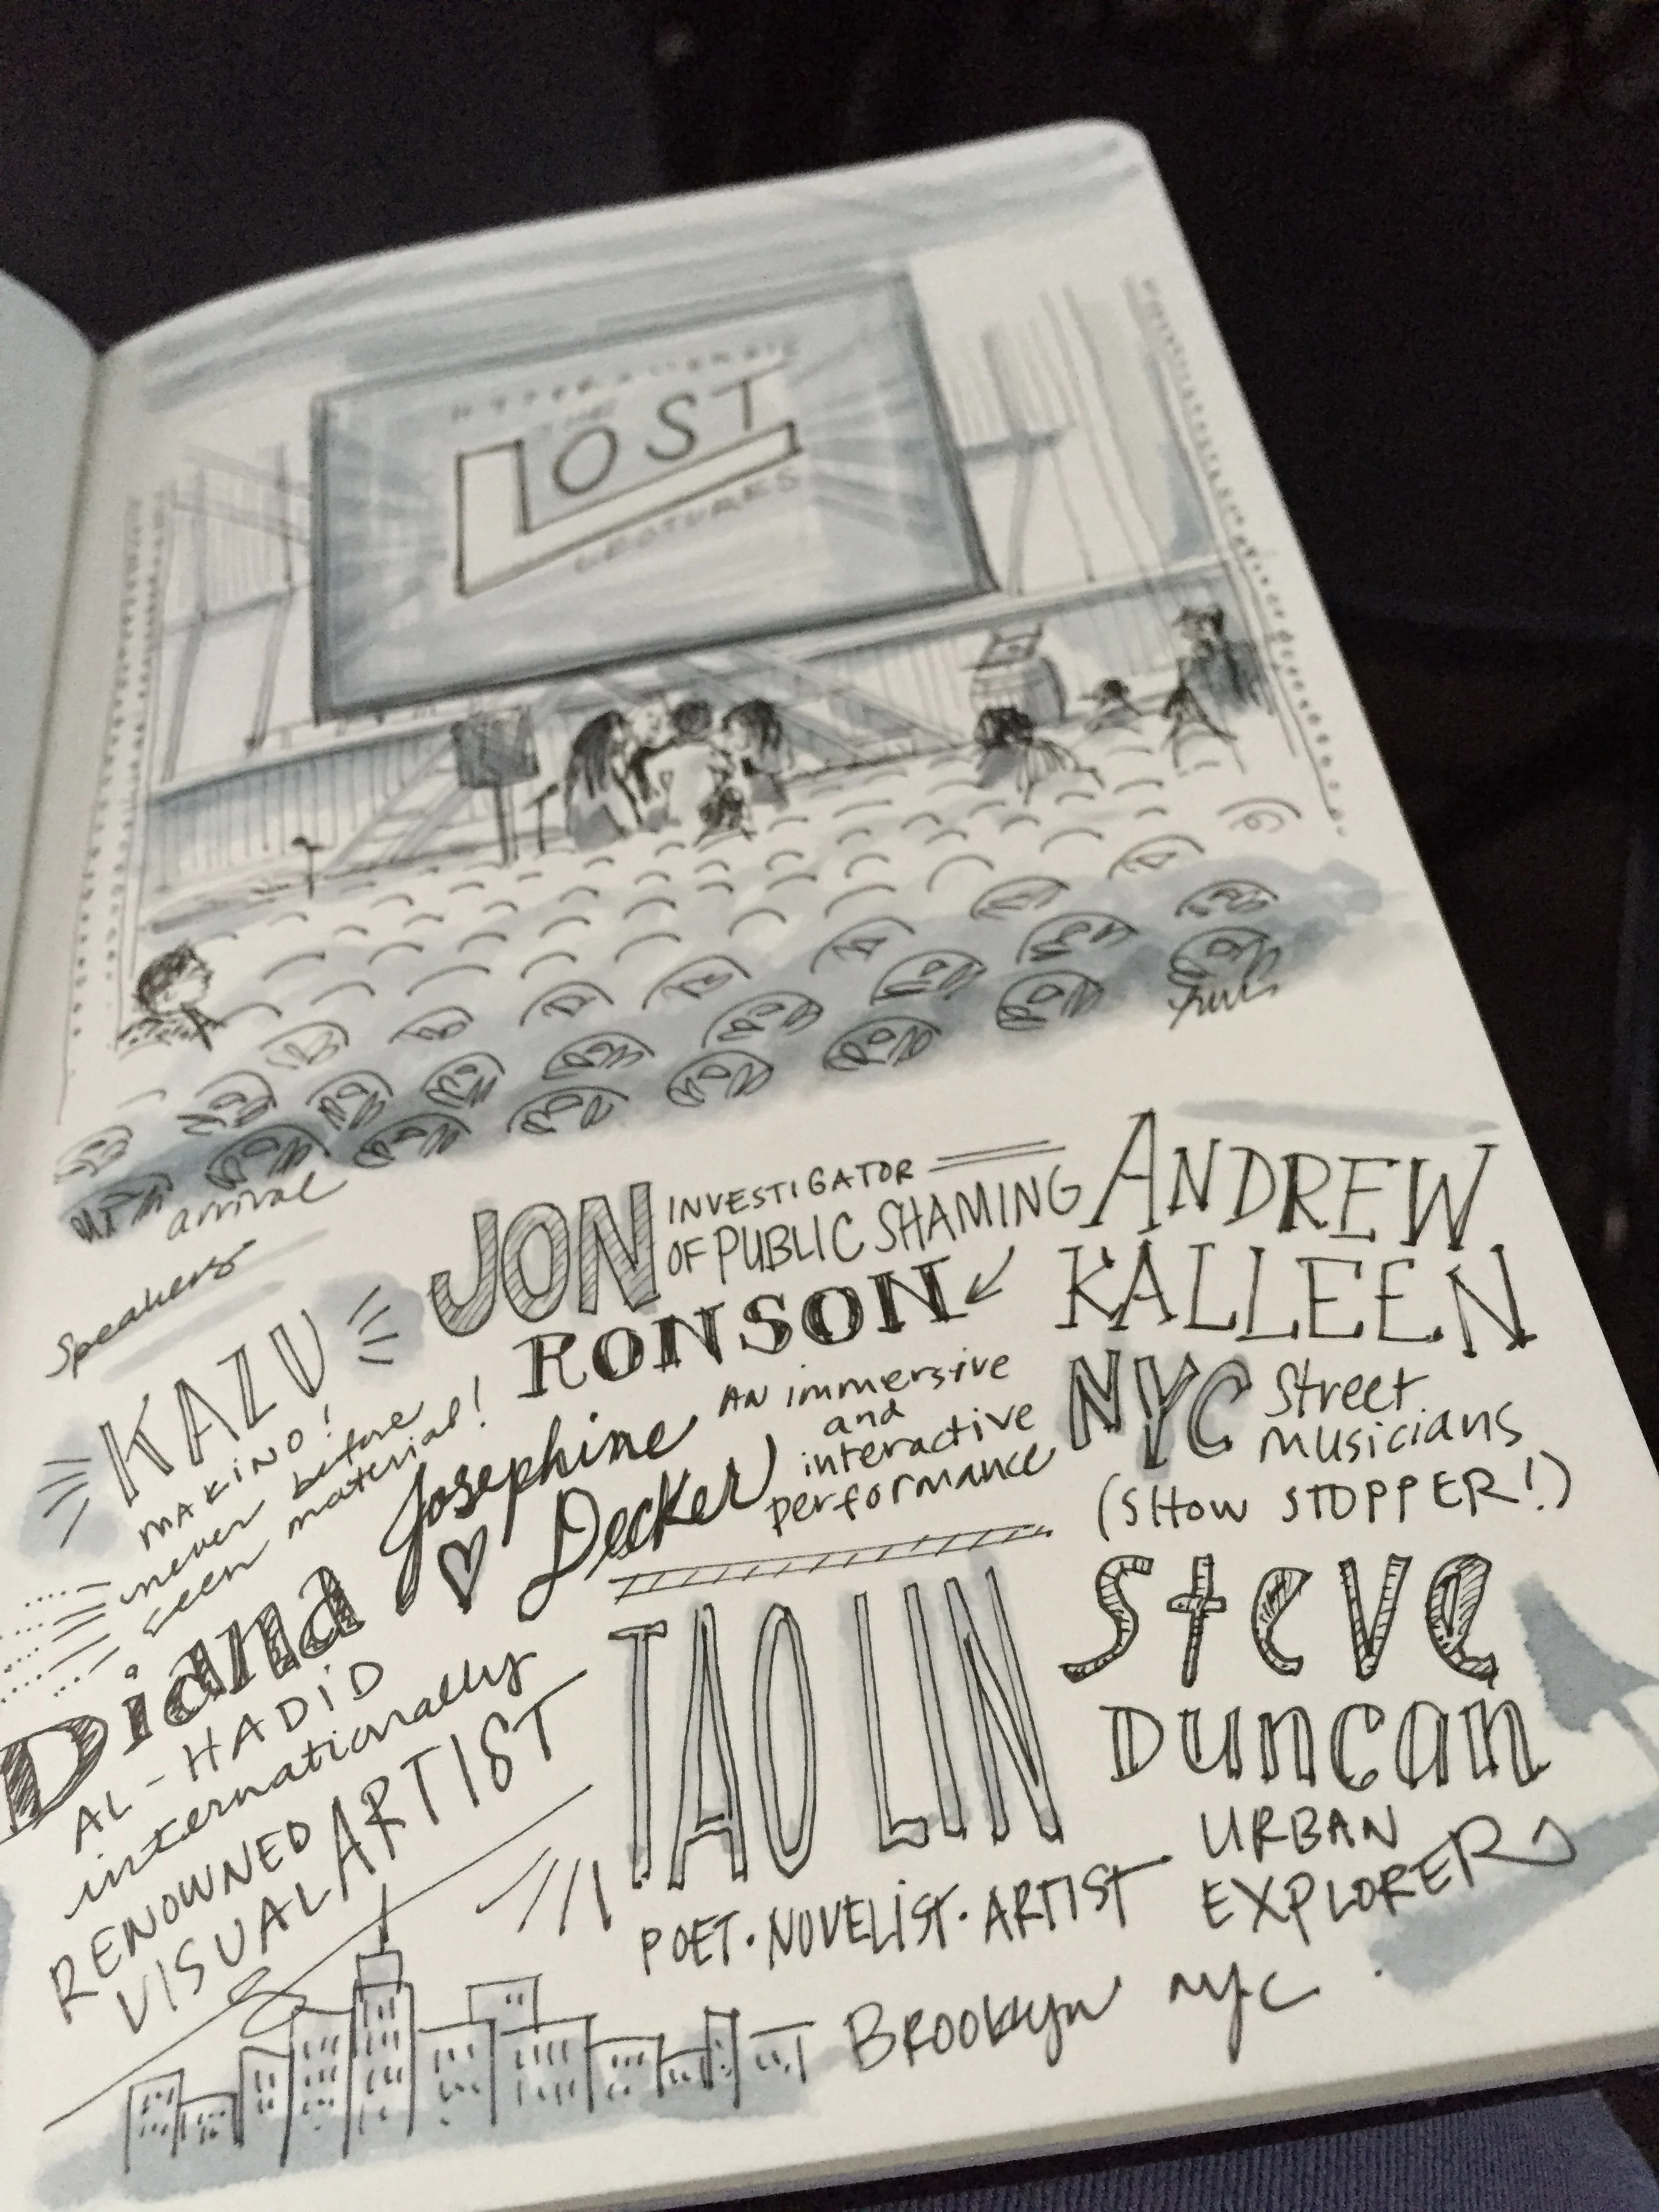 THE
LOST
LECTURES
arrival
Speakers
KAZU
MAKINO!
never before
seen material!
JON
INVESTIGATOR
OF PUBLIC SHAMING
RONSON
Josephine
Decker
AN immersive
and
interactive
performance
Diana
AL-HADID
internationally
RENOWNED
VISUAL ARTIST
TAO LIN
POET·NOVELIST·ARTIST
ANDREW
KALLEEN
NYC Street
Musicians
(SHOW STOPPER!)
Steve
Duncan
URBAN
EXPLORER
Brooklyn NYC